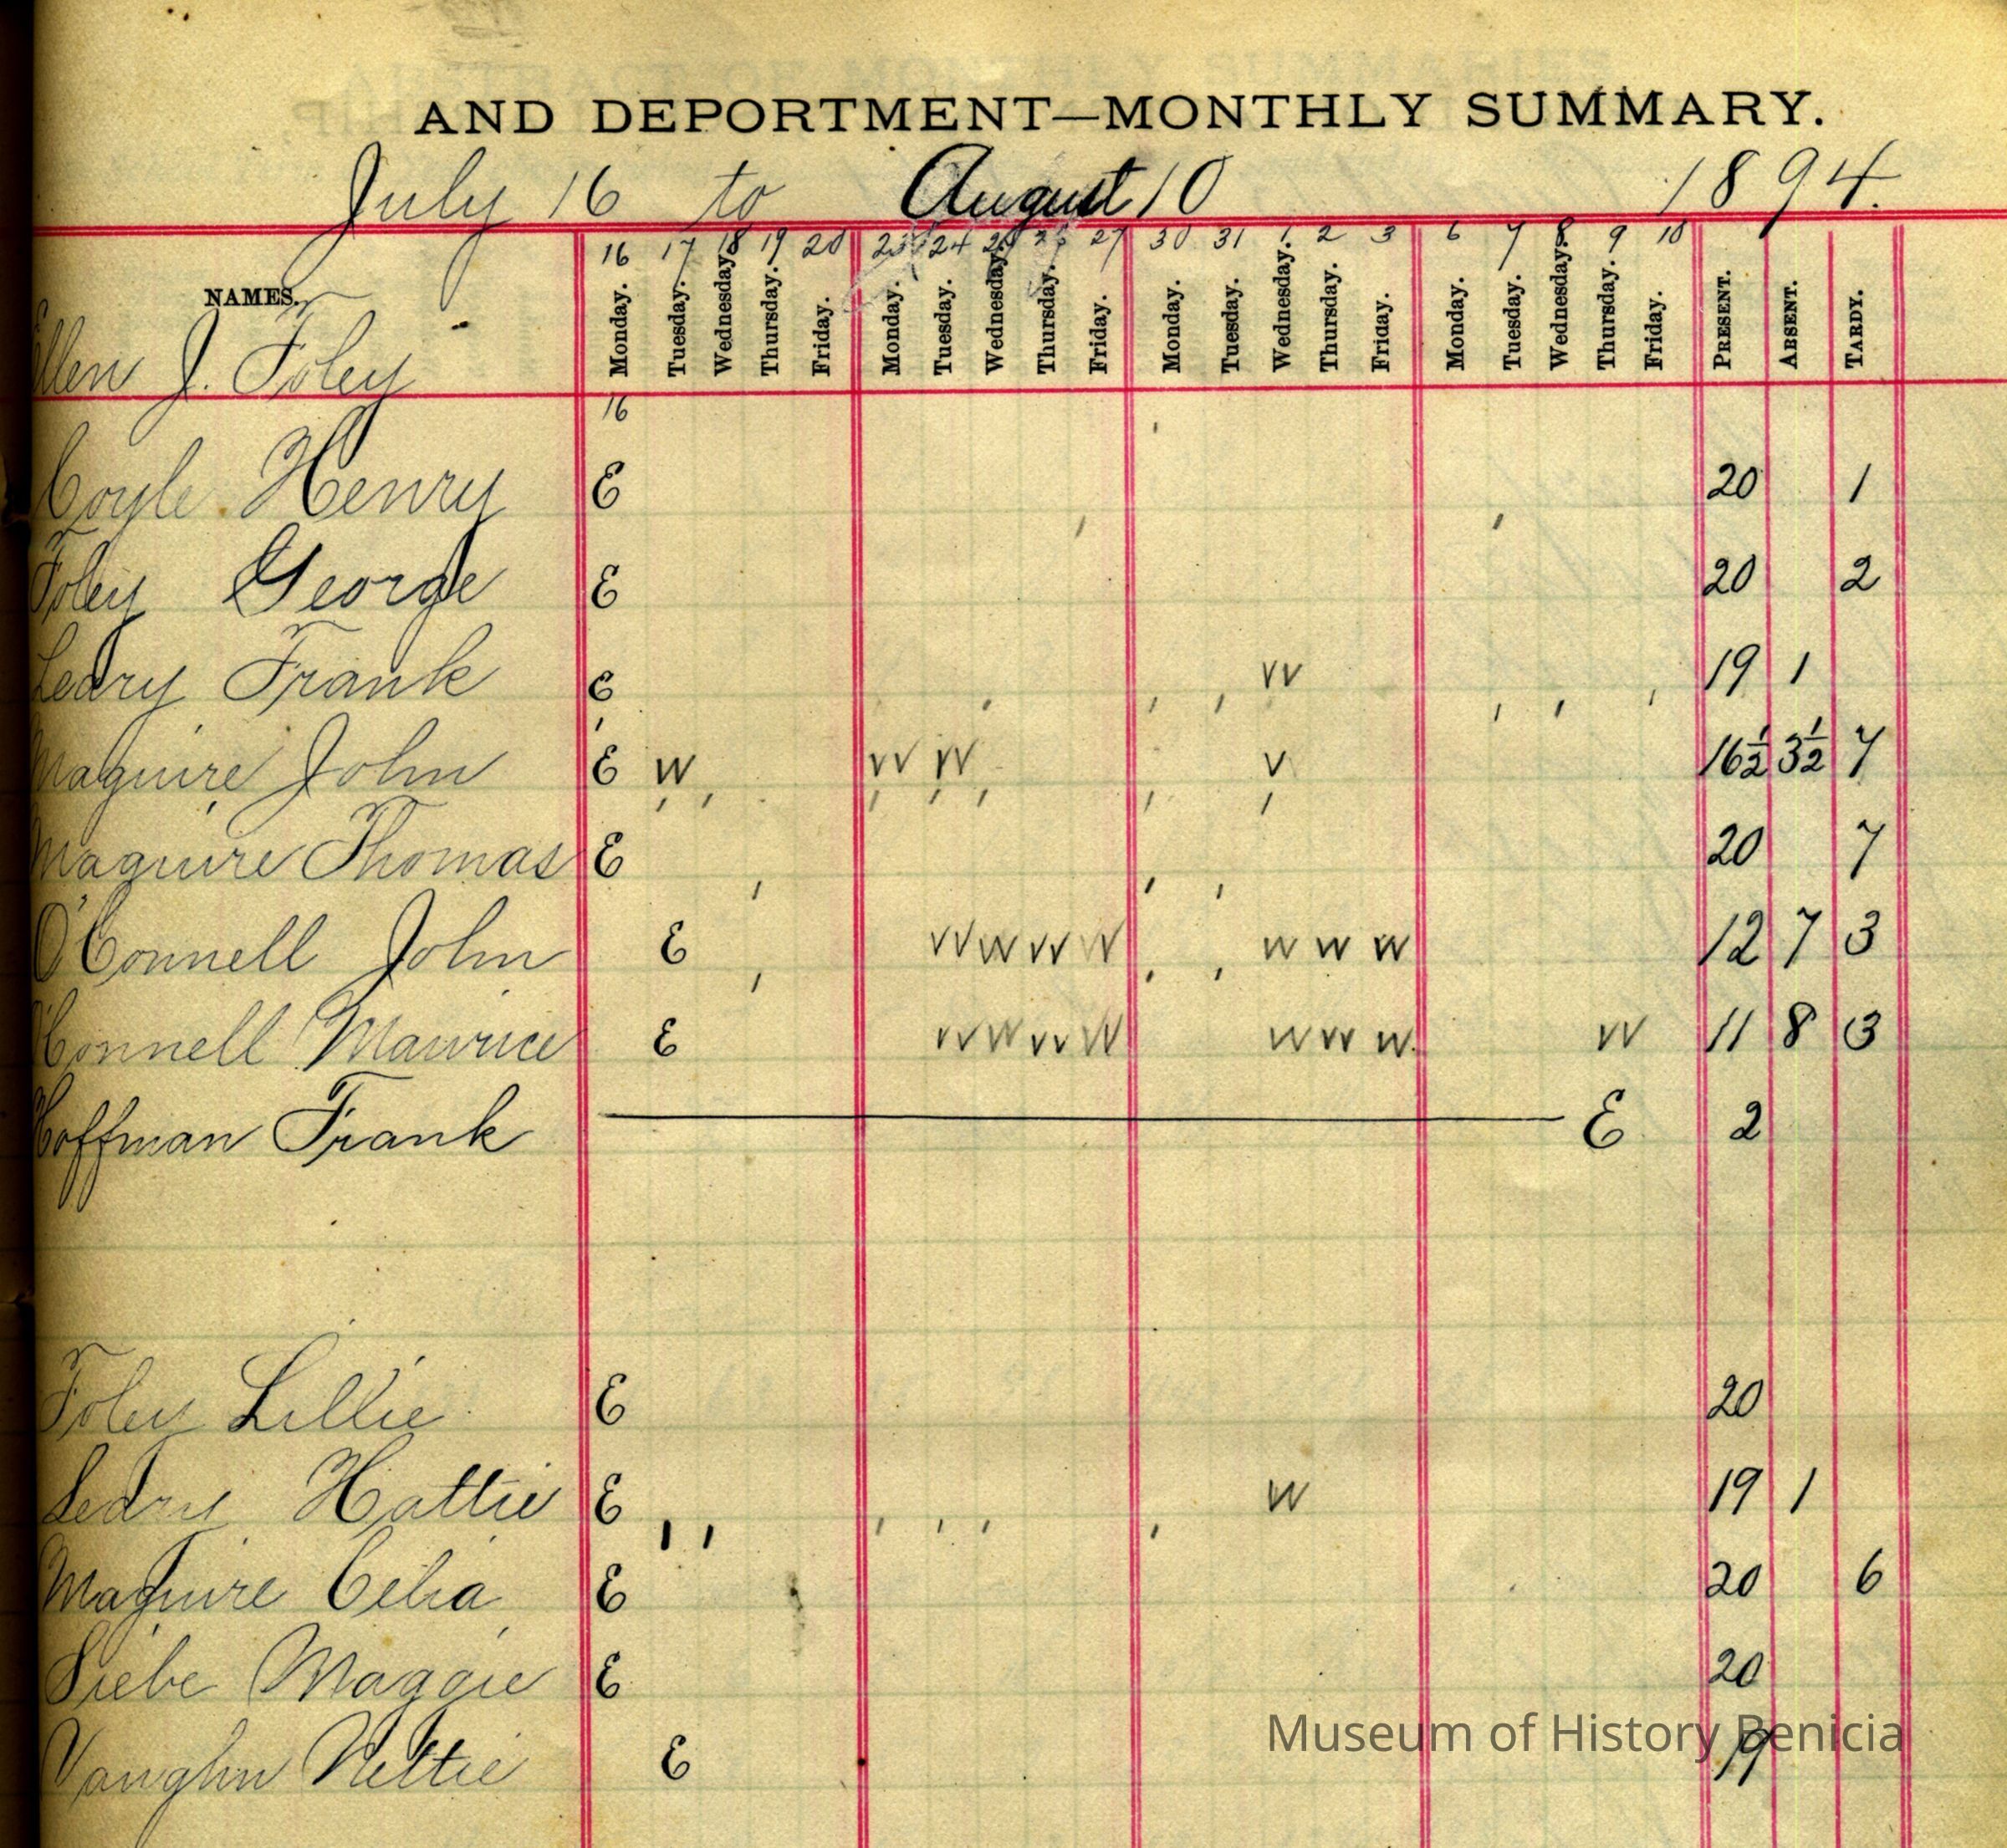 AND DEPORTMENT—MONTHLY SUMMARY.
July 16 to August 10 1894.
16 17 18 19 20 23 24 25 26 27 30 31 1 2 3 6 7 8 9 10
NAMES. Monday. Tuesday. Wednesday. Thursday. Friday. Monday. Tuesday. Wednesday. Thursday. Friday. Monday. Tuesday. Wednesday. Thursday. Friday. Monday. Tuesday. Wednesday. Thursday. Friday. PRESENT. ABSENT. TARDY.
Ellen J. Foley
16
Coyle Henry E 20 1
Foley George E 20 2
Leary Frank E W 19 1
Maguire John E W W W V 16½ 3½ 7
Maguire Thomas E 20 7
O'Connell John E W W W W W W W 12 7 3
O'Connell Maurice E W W W W W W W W 11 8 3
Hoffman Frank E 2
Foley Lillie E 20
Leary Hattie E W 19 1
Maguire Celia E 20 6
Siebe Maggie E 20
Vaughn Nettie E 19
Museum of History Benicia